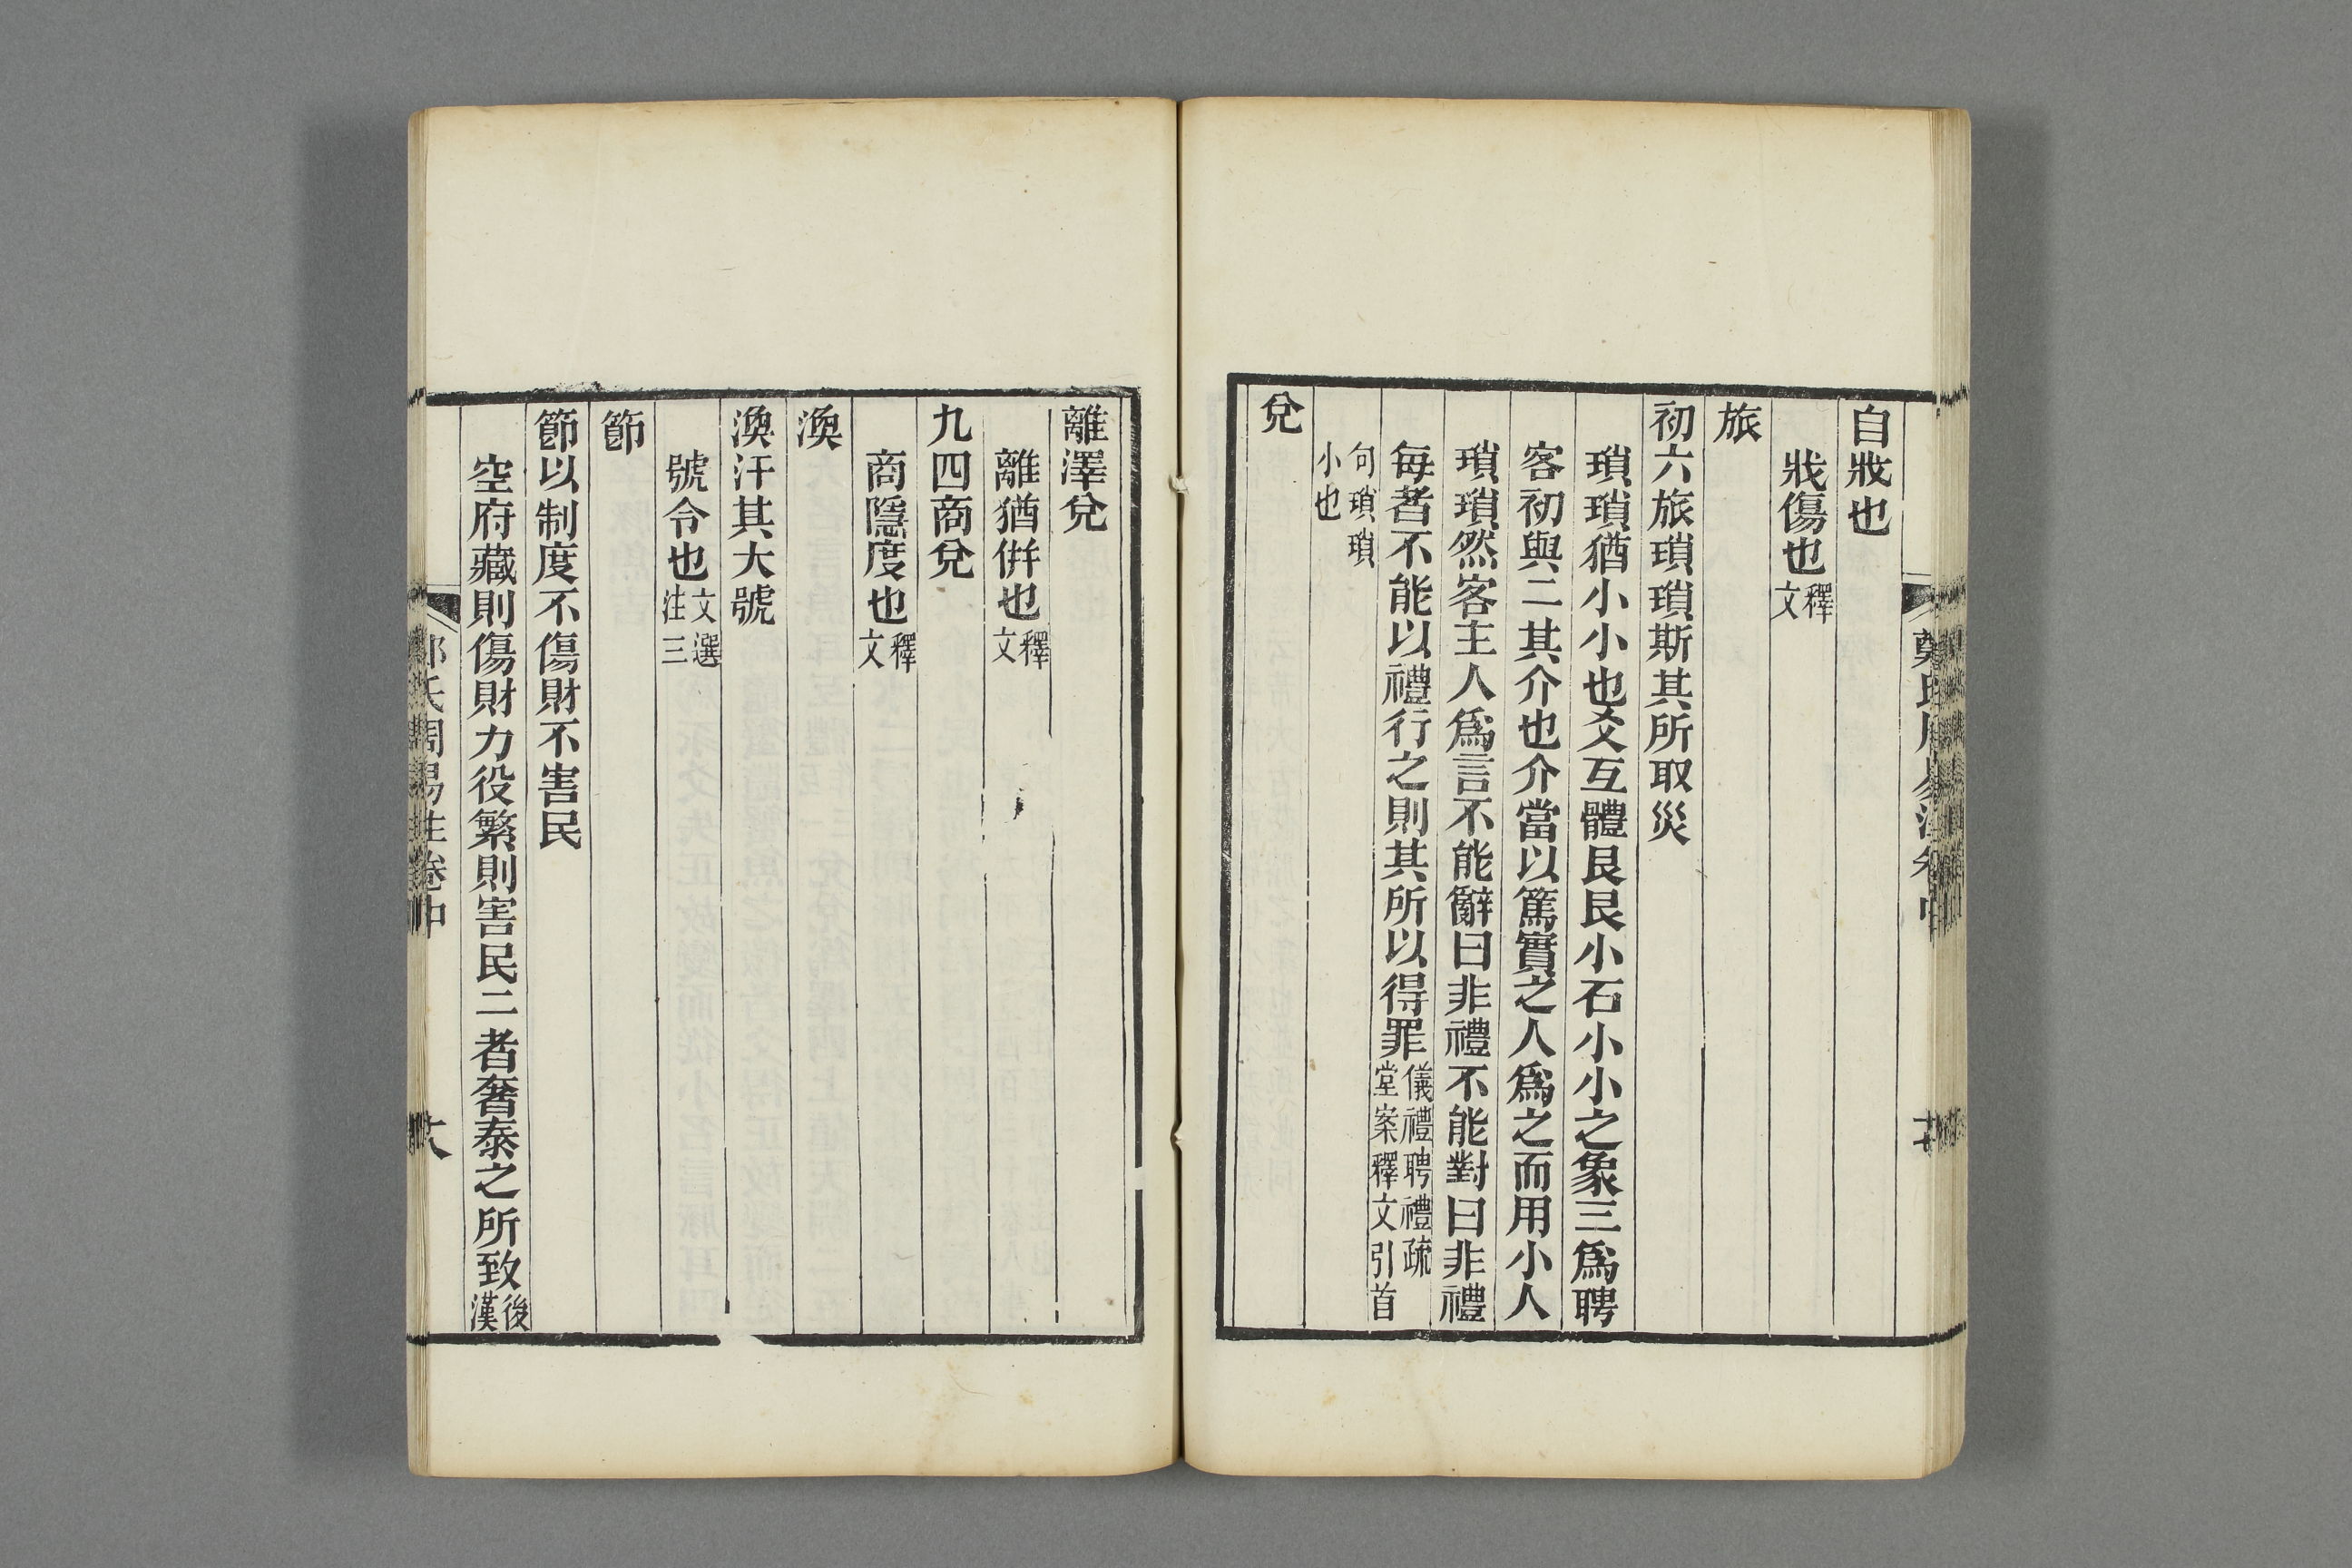 自戕也
戕傷也釋文
旅
初六旅瑣瑣斯其所取災
瑣瑣猶小小也爻互體艮艮小石小小之象三爲聘
客初與二其介也介當以篤實之人爲之而用小人
瑣瑣然客主人爲言不能辭曰非禮不能對曰非禮
每者不能以禮行之則其所以得罪儀禮聘禮疏堂案釋文引首
句瑣瑣小也
兌
離澤兌
離猶併也釋文
九四商兌
商隱度也釋文
渙
渙汗其大號
號令也文選注三
節
節以制度不傷財不害民
空府藏則傷財力役繁則害民二者奢泰之所致後漢
氏周易注卷中